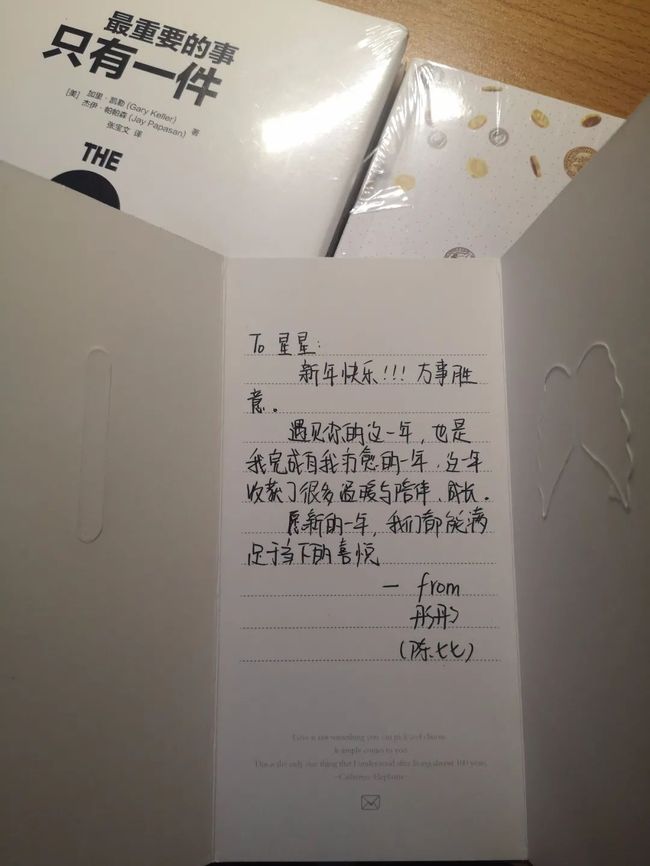 最重要的事
只有一件
[美] 加里·凯勒 (Gary Keller)
杰伊·帕帕森 (Jay Papasan) 著
张宝文 译
THE
To 星星:
新年快乐!!! 万事胜
意。
遇见你的这一年, 也是
我完成自我疗愈的一年, 这一年
收获了很多温暖与陪伴、成长。
愿新的一年, 我们都能满
足于当下的喜悦
— from
彤彤
(陈七七)
Love is not something you can pick and choose
It simply comes to you
This is the only true thing that I understand after living almost 100 years